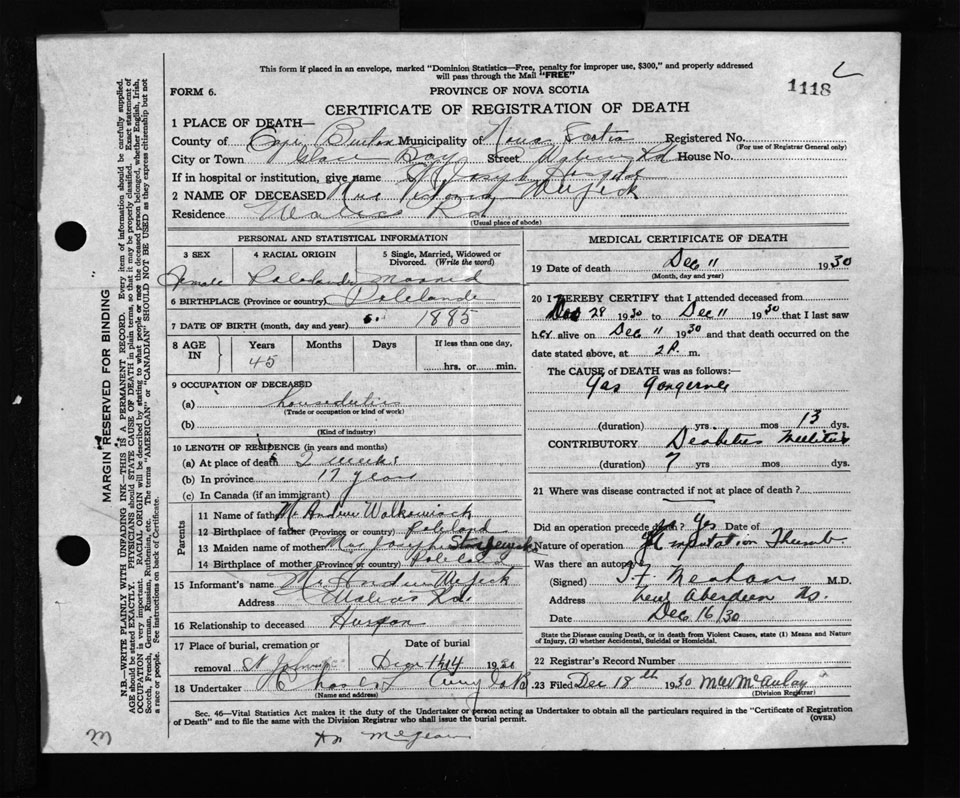 This form if placed in an envelope, marked "Dominion Statistics—Free, penalty for improper use, $300," and properly addressed
will pass through the Mail "FREE"
1118
FORM 6.
PROVINCE OF NOVA SCOTIA
CERTIFICATE OF REGISTRATION OF DEATH
1 PLACE OF DEATH—
County of Cape Breton Municipality of Nova Scotia Registered No.
(For use of Registrar General only)
City or Town Glace Bay Street House No.
If in hospital or institution, give name St Joseph
2 NAME OF DECEASED Mrs
Residence Rd
(Usual place of abode)
PERSONAL AND STATISTICAL INFORMATION
3 SEX 4 RACIAL ORIGIN 5 Single, Married, Widowed or Divorced. (Write the word)
Female Married
6 BIRTHPLACE (Province or country) Polelande
7 DATE OF BIRTH (month, day and year) 1885
8 AGE IN Years Months Days If less than one day,
45 hrs. or min.
9 OCCUPATION OF DECEASED
(a)
(Trade or occupation or kind of work)
(b)
(Kind of industry)
10 LENGTH OF RESIDENCE (in years and months)
(a) At place of death 2 weeks
(b) In province 17 years
(c) In Canada (if an immigrant)
Parents
11 Name of father Mr Andrew
12 Birthplace of father (Province or country) Poleland
13 Maiden name of mother Mrs
14 Birthplace of mother (Province or country)
15 Informant's name Mr Andrew
Address Rd.
16 Relationship to deceased
17 Place of burial, cremation or removal Date of burial
14 19
18 Undertaker
(Name and address)
MEDICAL CERTIFICATE OF DEATH
19 Date of death Dec 11 1930
(Month, day and year)
20 I HEREBY CERTIFY that I attended deceased from
28 1930 to Dec 11 1930 that I last saw
her alive on Dec 11 1930 and that death occurred on
date stated above, at 2 P. m.
The CAUSE of DEATH was as follows:—
Gas
(duration) yrs mos 13 dys.
CONTRIBUTORY
(duration) 7 yrs mos dys.
21 Where was disease contracted if not at place of death?
Did an operation precede death? Yes Date of
Nature of operation Amputation Thumb.
Was there an autopsy
(Signed) M.D.
Address New Aberdeen NS.
Date Dec 16/30
State the Disease causing Death, or in death from Violent Causes, state (1) Means and Nature
of Injury, (2) whether Accidental, Suicidal or Homicidal.
22 Registrar's Record Number
23 Filed Dec 18th 1930 McAulay
(Division Registrar)
Sec. 46—Vital Statistics Act makes it the duty of the Undertaker or person acting as Undertaker to obtain all the particulars required in the "Certificate of Registration
of Death" and to file the same with the Division Registrar who shall issue the burial permit.
(OVER)
MARGIN RESERVED FOR BINDING
N.B.—WRITE PLAINLY WITH UNFADING INK—THIS IS A PERMANENT RECORD. Every item of information should be carefully supplied.
AGE should be stated EXACTLY. PHYSICIANS should STATE CAUSE OF DEATH in plain terms, so that it may be properly classified. Exact statement of
OCCUPATION is very important. RACIAL ORIGIN will be described by stating to what people or race the deceased person belonged, whether English, Irish,
Scotch, French, German, Russian, Ruthenian, etc. The terms "AMERICAN" or "CANADIAN" SHOULD NOT BE USED as they express citizenship but not
a race or people. See instructions on back of Certificate.